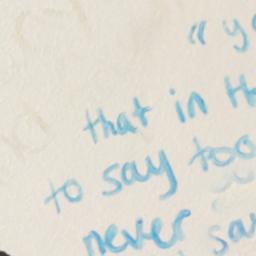 "y
that in th
to say too
never sa